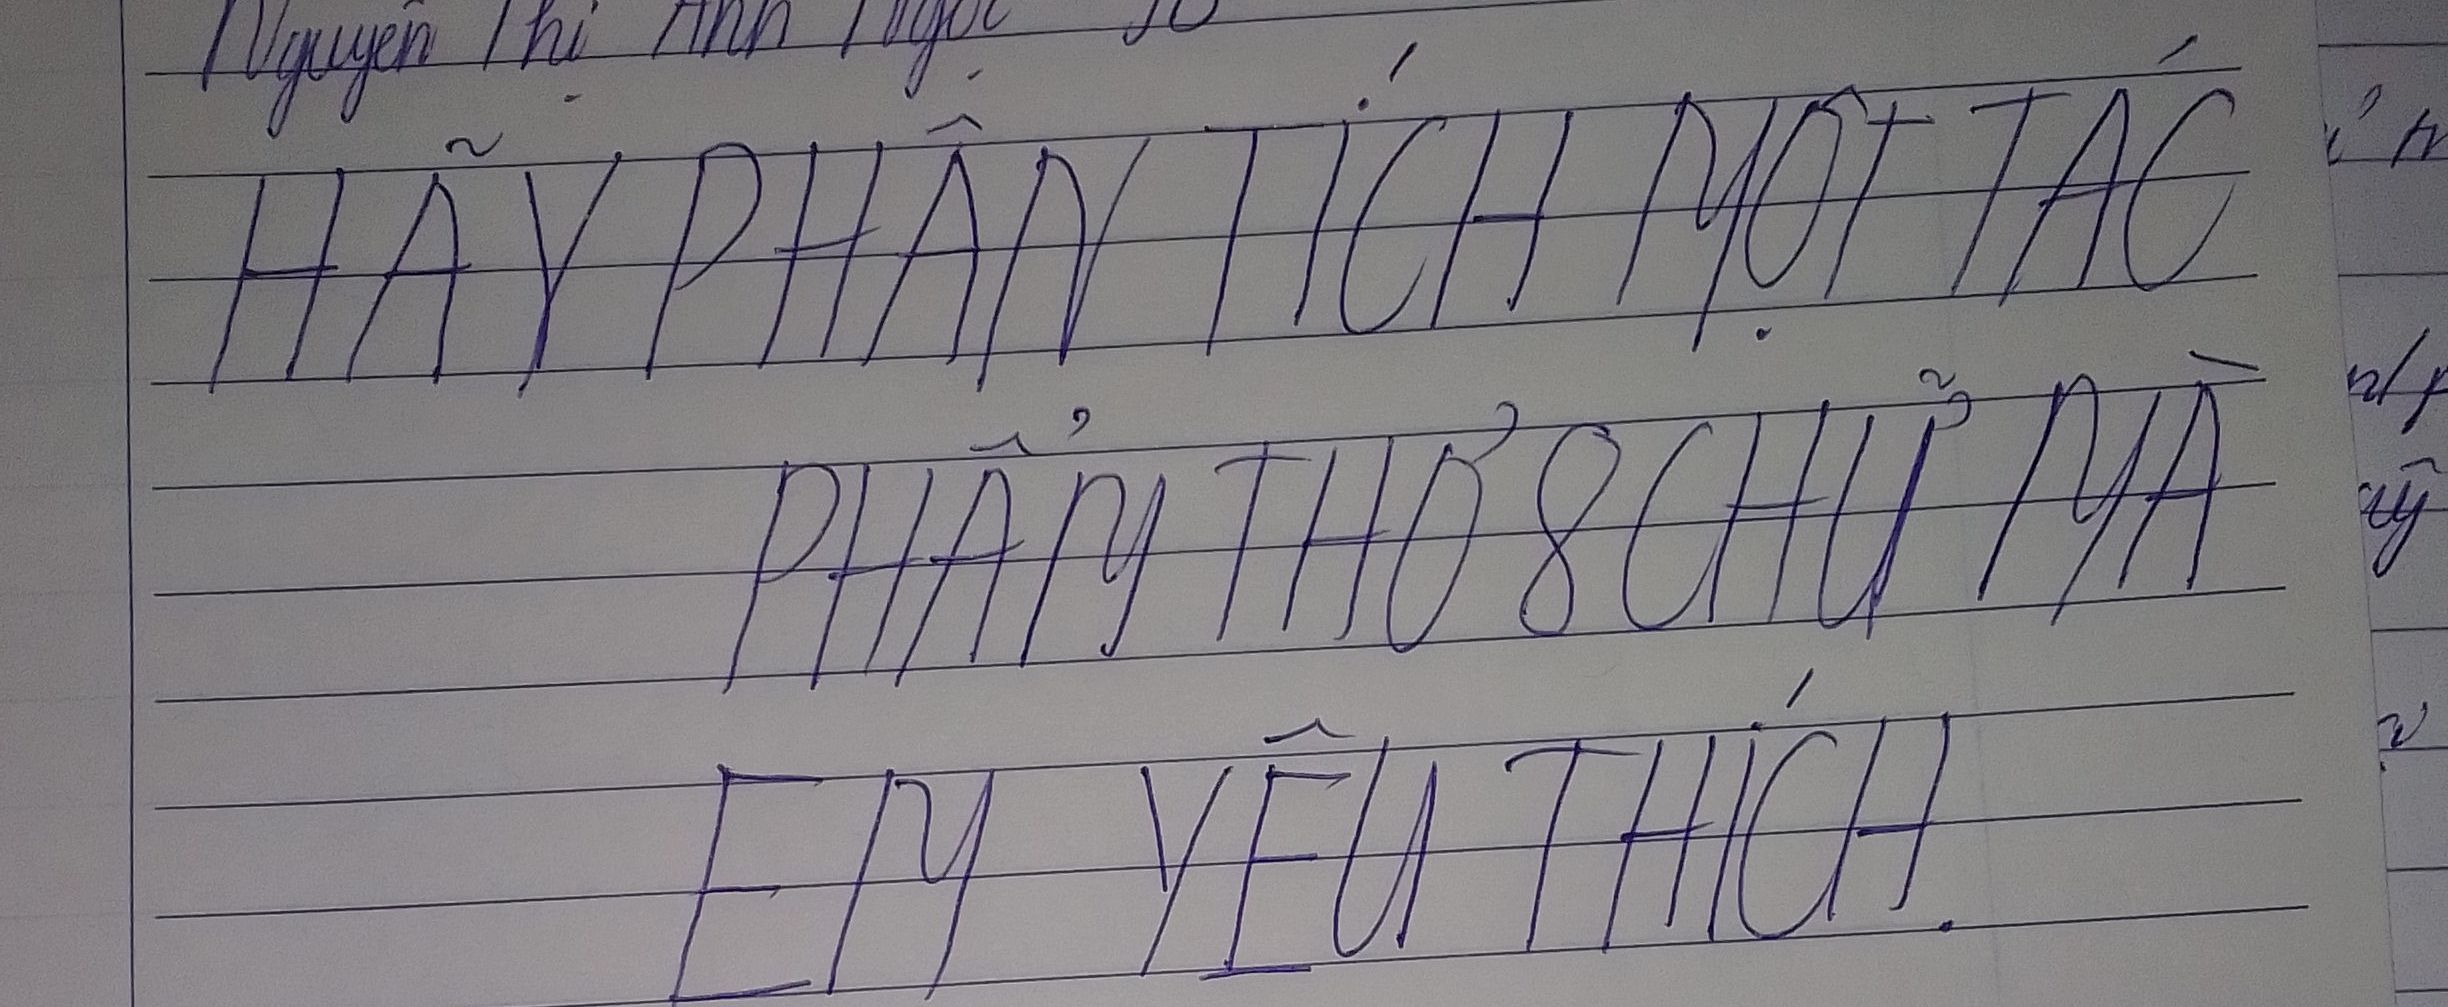 Nguyễn Thị Ánh Ngọc
HÃY PHÂN TÍCH MỘT TÁC
PHẨM THƠ 8 CHỮ MÀ
EM YÊU THÍCH.